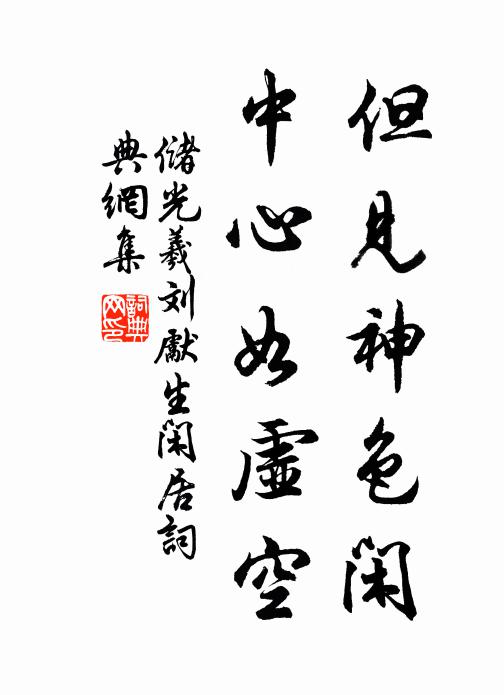 但見神色閑
中心如虛空
儲光羲刘獻生閑居詞
典網集
詞典网印